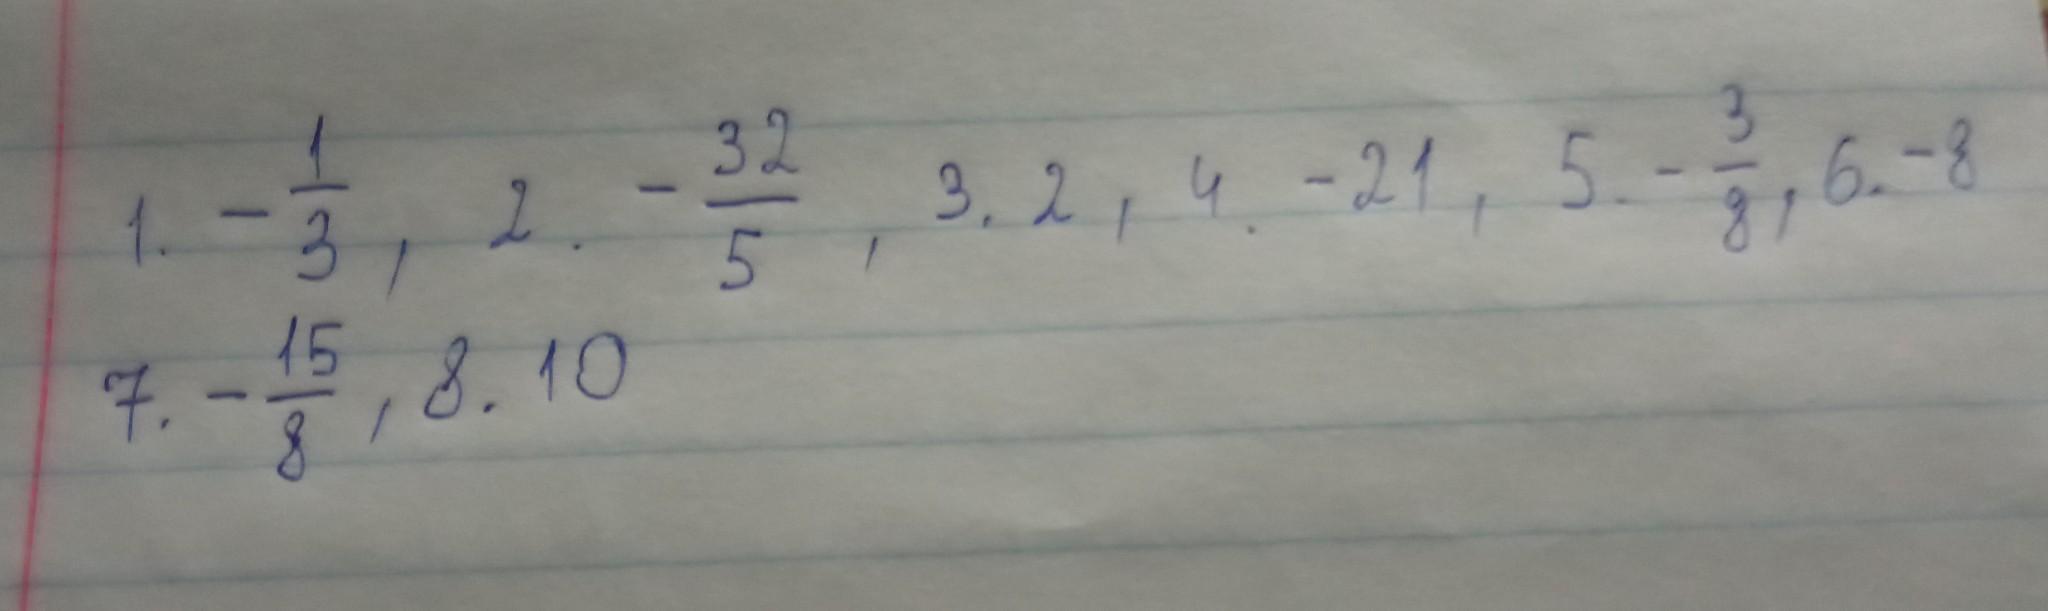 1. -1/3, 2. -32/5, 3. 2, 4. -21, 5. -3/8, 6. -8
7. -15/8, 8. 10